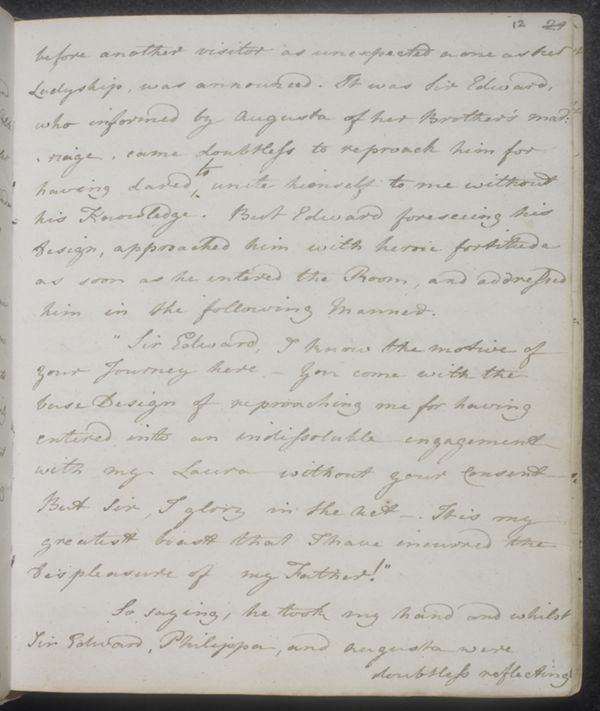 12 29
before another visitor as unexpected a one as her
Ladyship, was announced. It was Sir Edward,
who informed by Augusta of her Brother's mar:
:riage, came doubtless to reproach him for
having dared to unite himself to me without
his Knowledge. But Edward foreseeing his
Design, approached him with heroic fortitude
as soon as he entered the Room, and addressed
him in the following Manner.
"Sir Edward, I know the motive of
your Journey here — You come with the
base Design of reproaching me for having
entered into an indissoluble engagement
with my Laura without your Consent —
But Sir, I glory in the Act —. It is my
greatest boast that I have incurred the
Displeasure of my Father!"
So saying, he took my hand and whilst
Sir Edward, Philippa, and Augusta were
doubtless reflecting